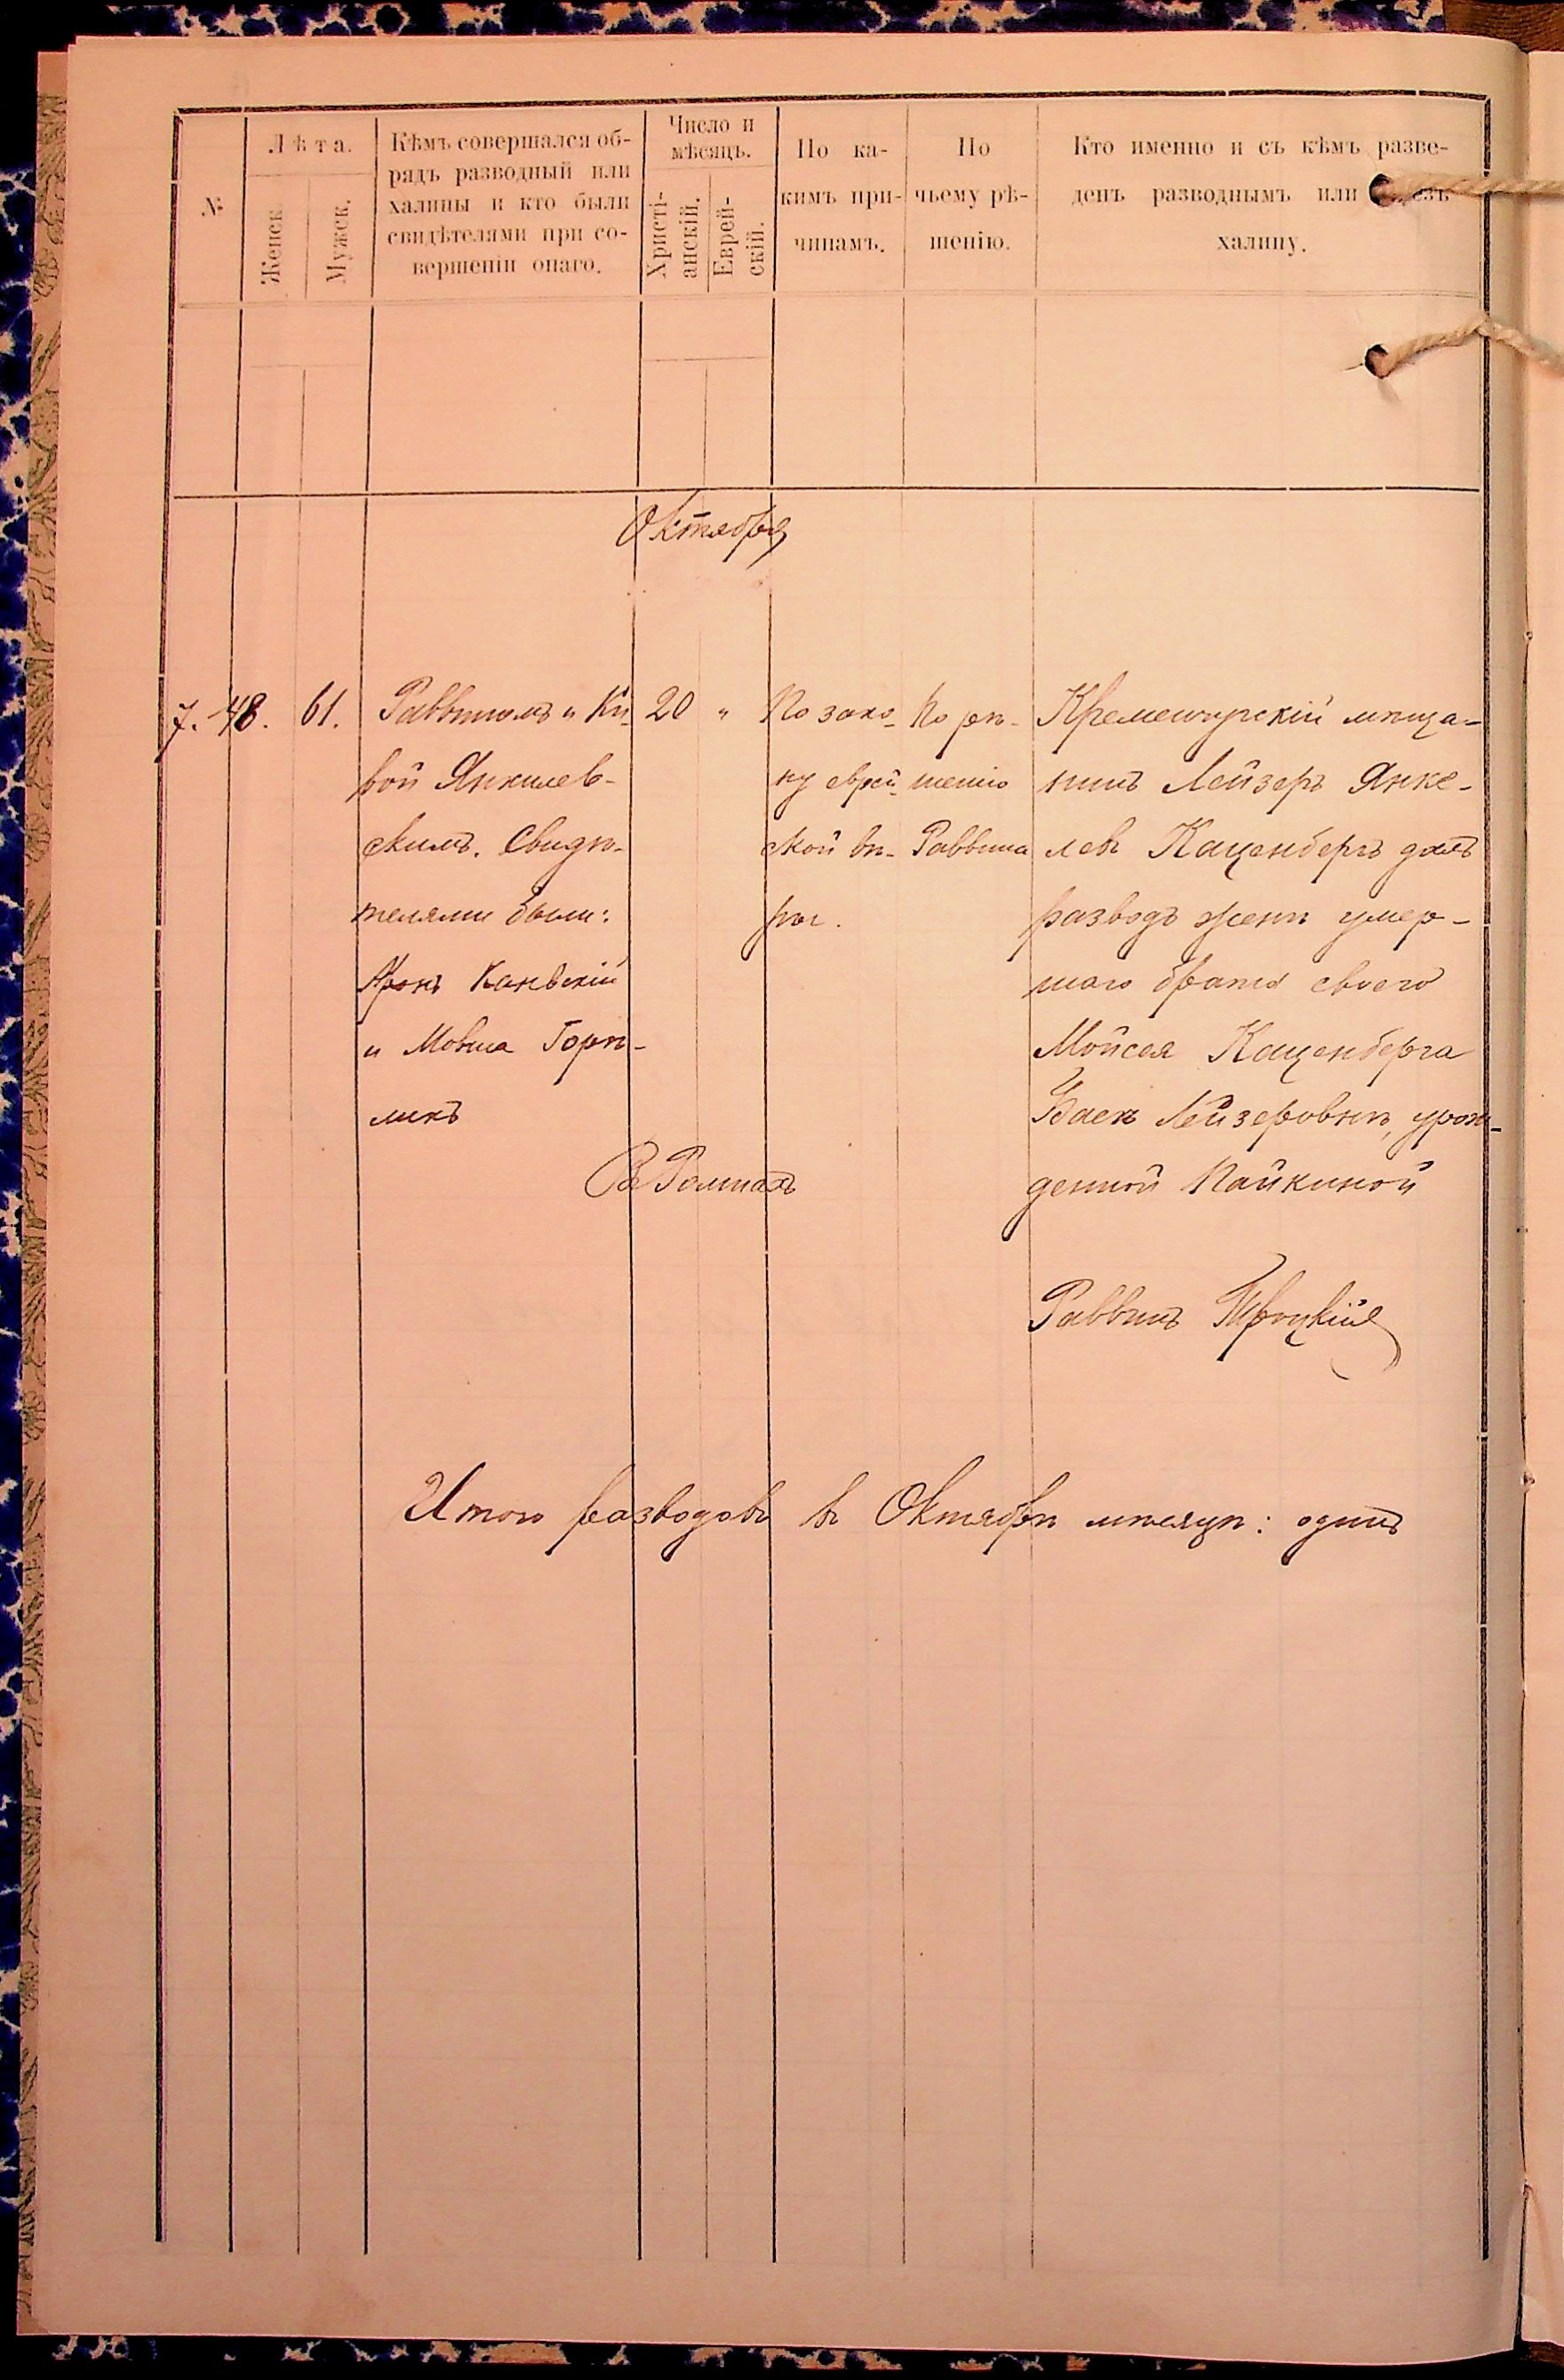 №
Лѣта.
Женск.
Мужск.
Кѣмъ совершался об-
рядъ разводный или
халицы и кто были
свидѣтелями при со-
вершеніи онаго.
Число и
мѣсяцъ.
Христі-
анскій.
Еврей-
скій.
По ка-
кимъ при-
чинамъ.
По
чьему рѣ-
шенію.
Кто именно и съ кѣмъ разве-
денъ разводнымъ или
халицу.
Октябрь
7. 48. 61.
Раввиномъ и Ки-
вой Янкилев-
скимъ. Свидѣ-
телями были:
Аронъ Каневскій
и Мовша Горѣ-
ликъ
20 "
По зако-
ну еврей-
ской вѣ-
ры.
По рѣ-
шенію
Раввина
Кременчугскій мѣща-
нинъ Лейзеръ Янке-
левъ Каценбергъ далъ
разводъ женѣ умер-
шаго брата своего
Мойсея Каценберга
Лейзеровнѣ, урож-
денной Пайкиной
Въ Ромнахъ
Раввинъ Троцкій
Итого разводовъ въ Октябрѣ мѣсяцѣ: одинъ